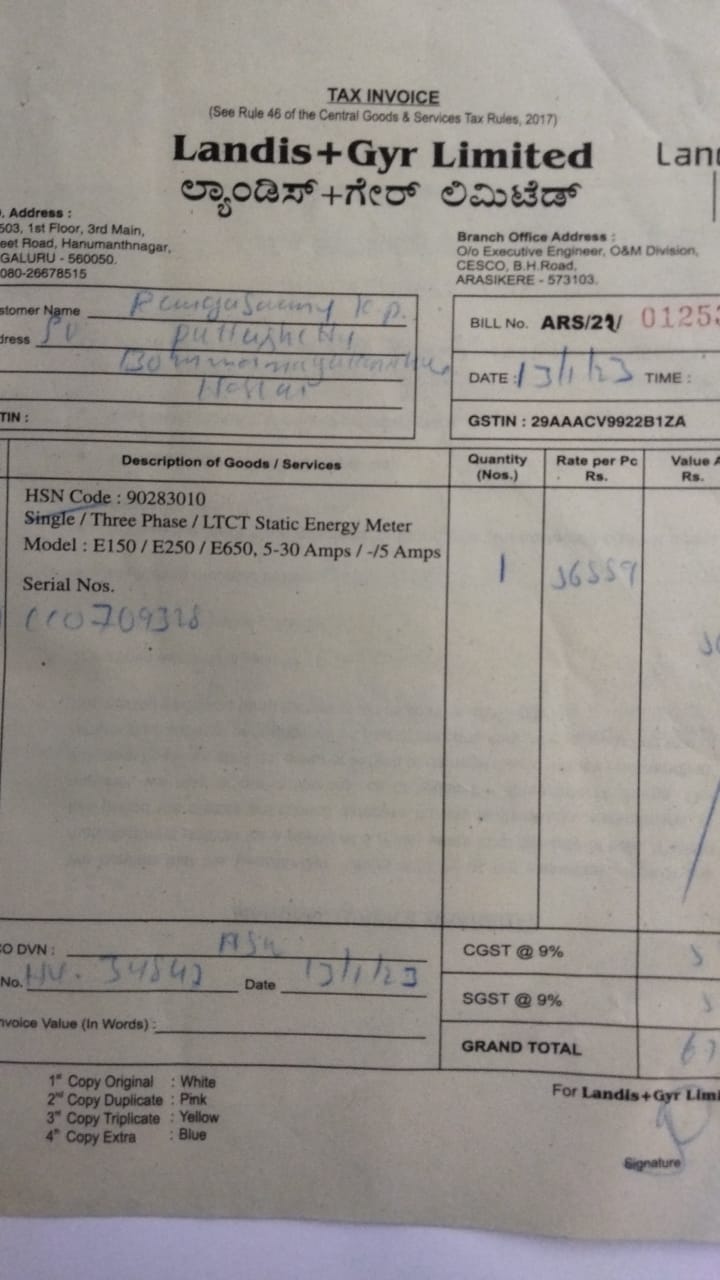 TAX INVOICE
(See Rule 46 of the Central Goods & Services Tax Rules, 2017)
Landis+Gyr Limited
ಲ್ಯಾಂಡಿಸ್+ಗೇರ್ ಲಿಮಿಟೆಡ್
Land
. Address :
503, 1st Floor, 3rd Main,
eet Road, Hanumanthnagar,
GALURU - 560050.
080-26678515
Branch Office Address :
O/o Executive Engineer, O&M Division,
CESCO, B.H.Road,
ARASIKERE - 573103.
stomer Name
dress
TIN :
BILL No. ARS/22/ 01253
DATE : 13/1/23 TIME :
GSTIN : 29AAACV9922B1ZA
Description of Goods / Services
Quantity (Nos.)
Rate per Pc Rs.
Value A Rs.
HSN Code : 90283010
Single / Three Phase / LTCT Static Energy Meter
Model : E150 / E250 / E650, 5-30 Amps / -/5 Amps
1
Serial Nos.
O DVN : ASK
No. Date 13/1/23
nvoice Value (In Words) :
CGST @ 9%
SGST @ 9%
GRAND TOTAL
1st Copy Original : White
2nd Copy Duplicate : Pink
3rd Copy Triplicate : Yellow
4th Copy Extra : Blue
For Landis+Gyr Limi
Signature